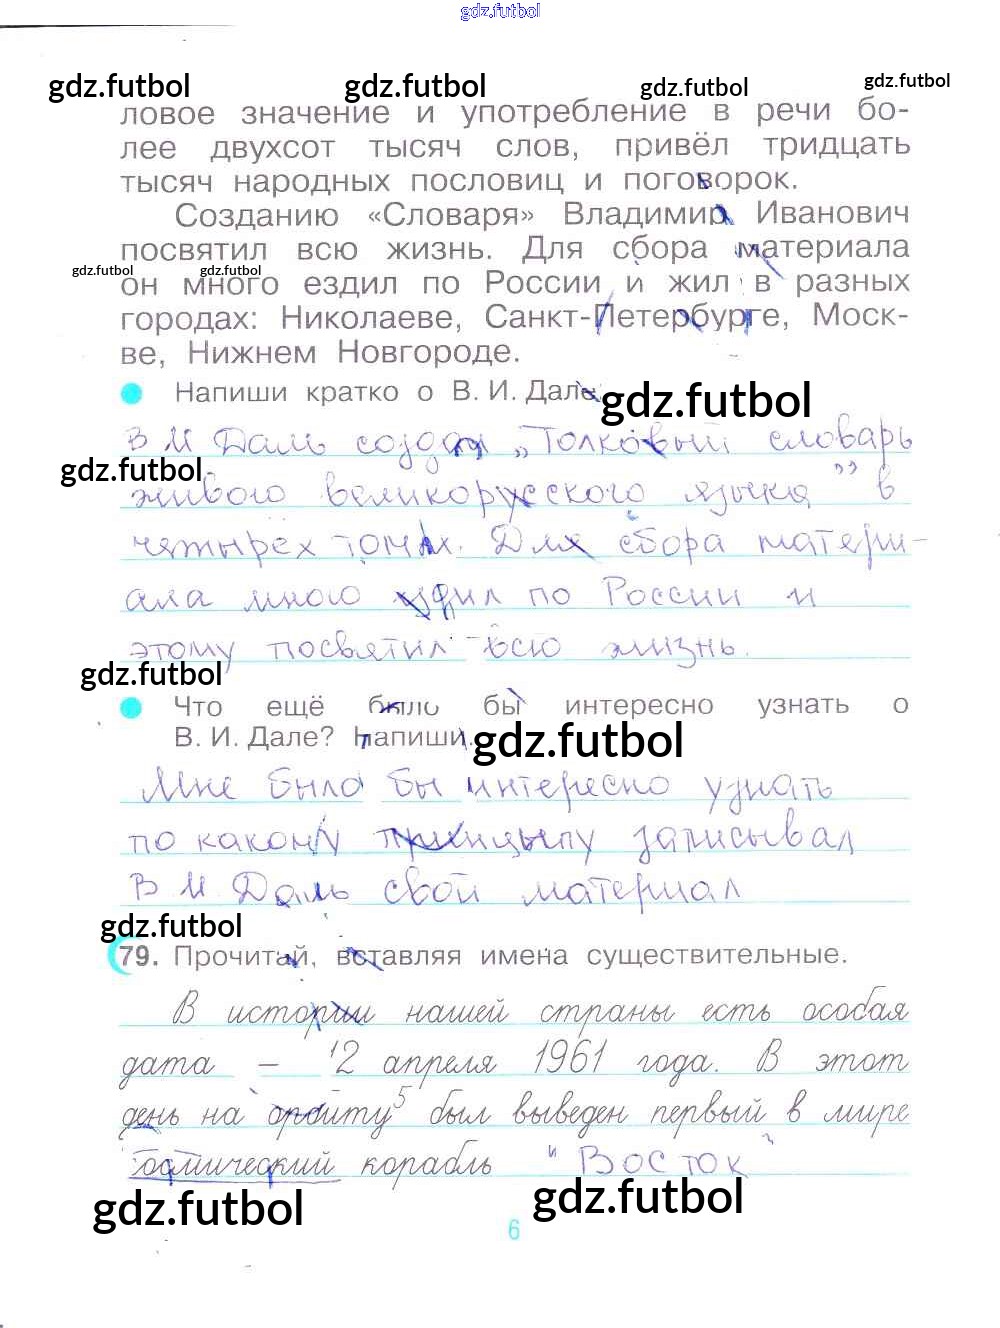 gdz.futbol
gdz.futbol gdz.futbol gdz.futbol gdz.futbol
ловое значение и употребление в речи бо-
лее двухсот тысяч слов, привёл тридцать
тысяч народных пословиц и поговорок.
Созданию «Словаря» Владимир Иванович
посвятил всю жизнь. Для сбора материала
gdz.futbol gdz.futbol
он много ездил по России и жил в разных
городах: Николаеве, Санкт-Петербурге, Моск-
ве, Нижнем Новгороде.
Напиши кратко о В. И. Дале.
gdz.futbol
В И Даль создал „Толковый словарь
gdz.futbol
живого великорусского языка” в
четырёх томах. Для сбора матери-
ала много ездил по России и
этому посвятил всю жизнь.
gdz.futbol
Что ещё было бы интересно узнать о
В. И. Дале? Напиши.
gdz.futbol
Мне было бы интересно узнать
по какому принцыпу записывал
В И Даль свой материал
gdz.futbol
79. Прочитай, вставляя имена существительные.
В истории нашей страны есть особая
дата – 12 апреля 1961 года. В этот
день на орбиту 5 был выведен первый в мире
космический корабль "Восток"
gdz.futbol gdz.futbol
6